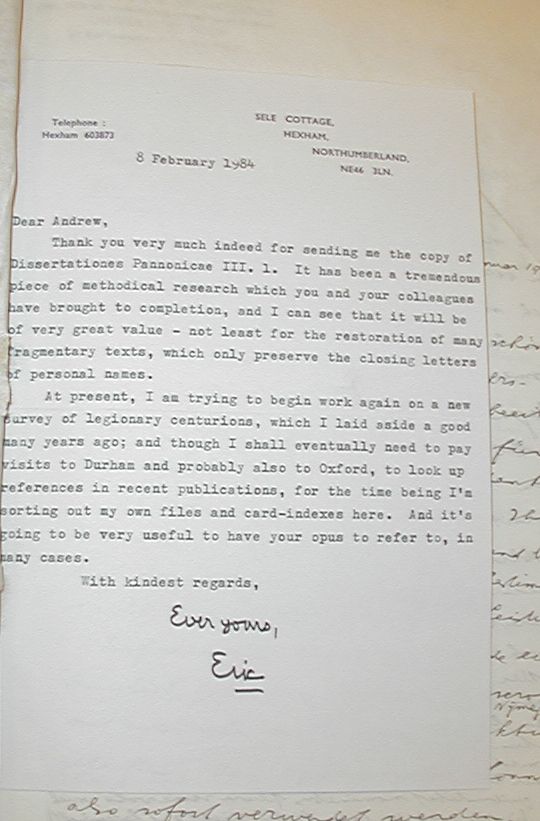 Telephone :
Hexham 603873
SELE COTTAGE,
HEXHAM,
NORTHUMBERLAND,
NE46 3LN.
8 February 1984
Dear Andrew,
Thank you very much indeed for sending me the copy of
Dissertationes Pannonicae III. 1. It has been a tremendous
piece of methodical research which you and your colleagues
have brought to completion, and I can see that it will be
of very great value - not least for the restoration of many
fragmentary texts, which only preserve the closing letters
of personal names.
At present, I am trying to begin work again on a new
survey of legionary centurions, which I laid aside a good
many years ago; and though I shall eventually need to pay
visits to Durham and probably also to Oxford, to look up
references in recent publications, for the time being I'm
sorting out my own files and card-indexes here. And it's
going to be very useful to have your opus to refer to, in
many cases.
With kindest regards,
Ever yours,
Eric
also sofort verwendet werden